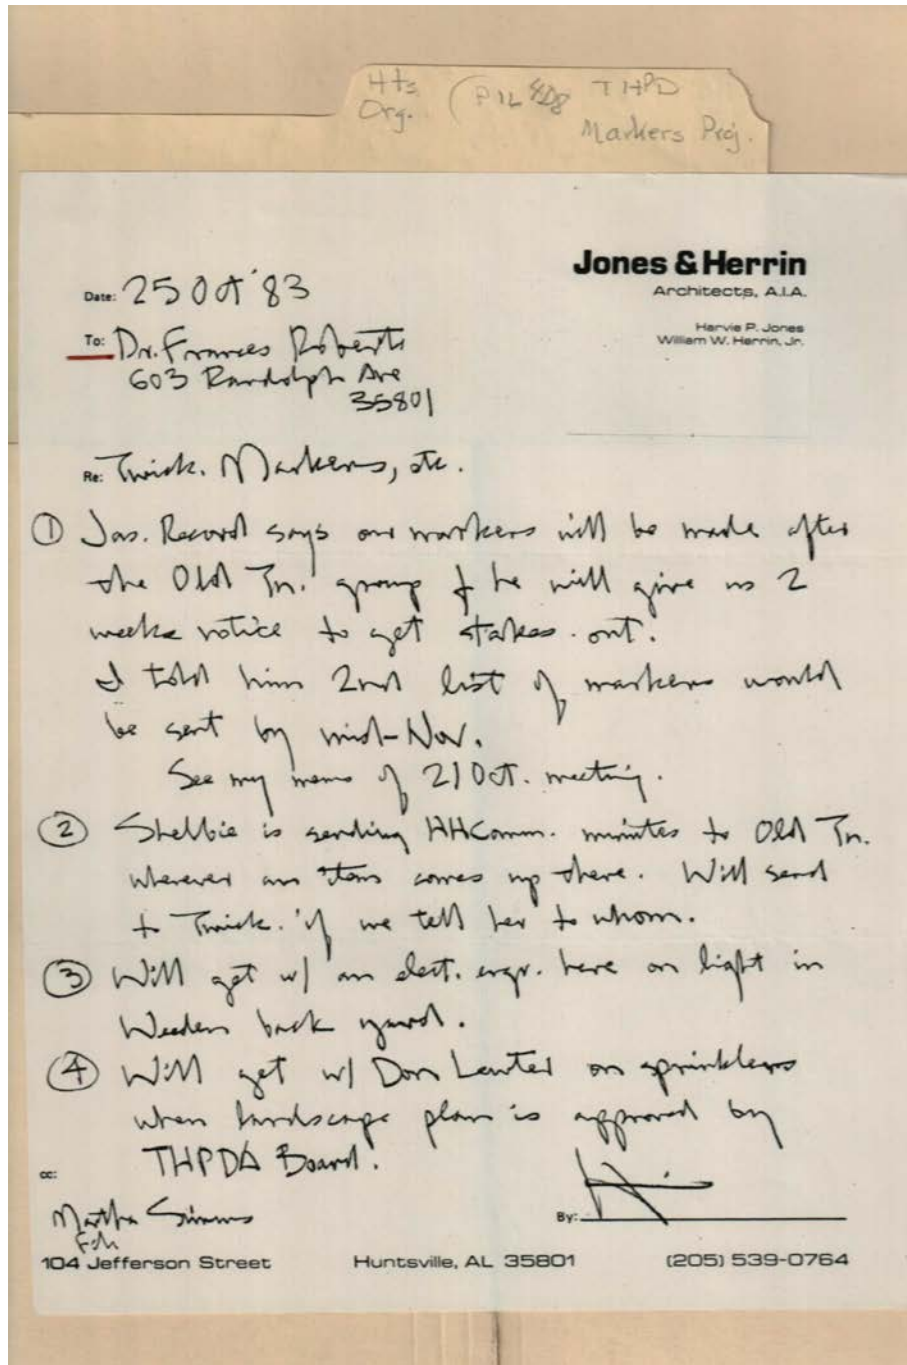 Hts. Org. (PIL THPD
Markers Proj.
Jones & Herrin
Architects, A.I.A.
Harvie P. Jones
William W. Herrin, Jr.
Date: 25 Oct '83
To: Dr. Frances Roberts
603 Randolph Ave
35801
Re: Twick. Markers, etc.
① Jas. Record says our markers will be made after
the Old Tn. group & he will give us 2
weeks notice to get stakes out.
I told him 2nd list of markers would
be sent by mid-Nov.
See my memo of 21 Oct. meeting.
② Shelbie is sending HHComm. minutes to Old Tn.
wherever an item comes up there. Will send
to Twick. if we tell her to whom.
③ Will get w/ an elect. engr. here on light in
Weeden back yard.
④ Will get w/ Don Lawter on sprinklers
when landscape plan is approved by
THPDA Board.
cc:
Martha Simms
By:
104 Jefferson Street Huntsville, AL 35801 (205) 539-0764